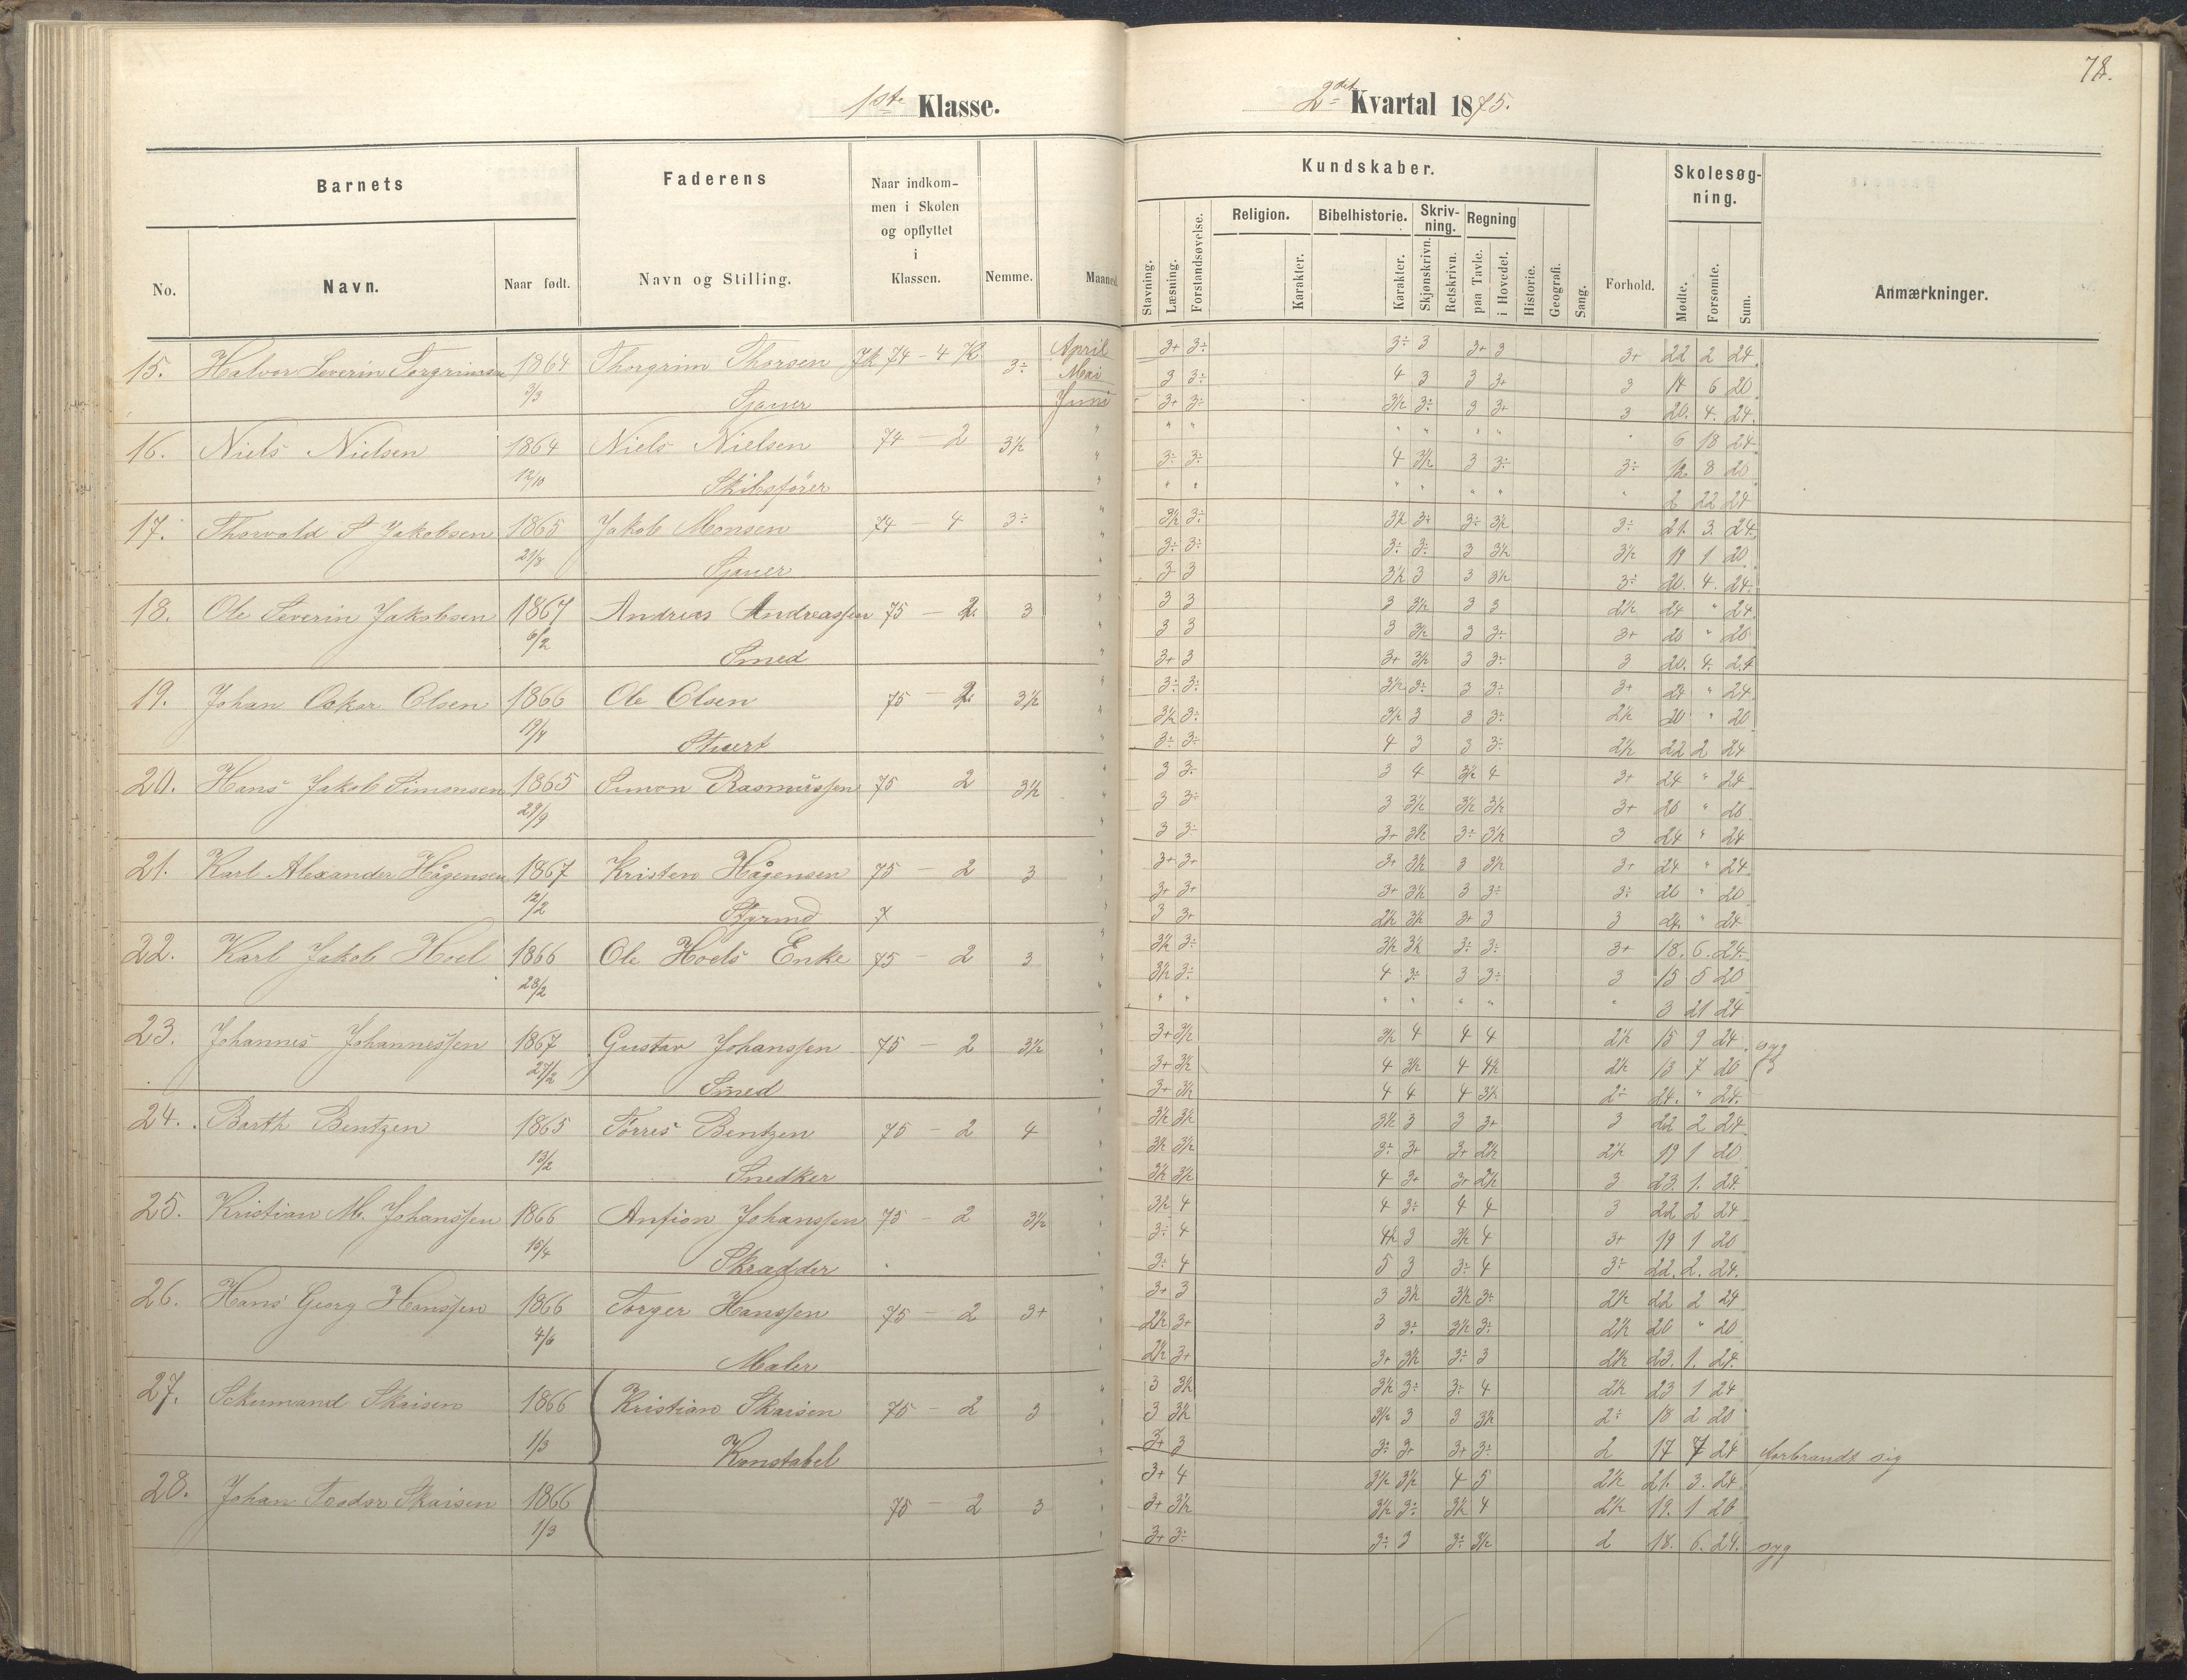 78.
1ste Klasse.
2det Kvartal 1875.
Barnets
Faderens
Naar indkom-
men i Skolen
og opflyttet
i
Klassen.
Nemme.
Maaned.
No.
Navn.
Naar født.
Navn og Stilling.
Kundskaber.
Stavning.
Læsning.
Forstandsøvelse.
Religion.
Karakter.
Bibelhistorie.
Karakter.
Skriv-
ning.
Skjønskrivn.
Retskrivn.
Regning
paa Tavle.
i Hovedet.
Historie.
Geografi.
Sang.
Forhold.
Skolesøg-
ning.
Mødte.
Forsømte.
Sum.
Anmærkninger.
15. Halvor Severin Torgrimsen 1864 Thorgrim Thorsen 74 - 4 3÷ April 3+ 3÷ 3÷ 3 3+ 3 3+ 22 2 24
3/3 Mai 3 3÷ 4 3 3 3+ 3 14 6 20
Sjauer Juni 3+ 3÷ 3½ 3÷ 3 3+ 3 20. 4. 24.
16. Niels Nielsen 1864 Niels Nielsen 74 - 2 3½ " " " " " " " " 6 18 24
12/10 " 3÷ 3÷ 4 3½ 3 3÷ 3÷ 12 8 20
Skibsfører " " " " " " " " 2 22 24
17. Thorvald S Jakobsen 1865 Jakob Monsen 74 - 4 3÷ " 3½ 3÷ 3½ 3÷ 3÷ 3½ 3÷ 21. 3. 24.
21/8 " 3÷ 3÷ 3÷ 3÷ 3 3½ 3½ 19 1 20
Sjauer 3 3 3½ 3 3 3½ 3÷ 20. 4. 24.
18. Ole Severin Jakobsen 1867 Andreas Andreassen 75 - 2. 3 " 3 3 3 3½ 3 3 2½ 24 " 24
6/2 " 3 3 3 3½ 3 3÷ 3+ 20 " 20
Smed " 3+ 3 3+ 3½ 3 3÷ 3 20. 4. 24
19. Johan Oskar Olsen 1866 Ole Olsen 75 - 2. 3½ " 3÷ 3÷ 3½ 3÷ 3 3÷ 3+ 24 " 24
19/4 " 3½ 3÷ 3½ 3 3 3÷ 2½ 20 " 20
Stuert " 3÷ 3÷ 4 3 3 3÷ 2½ 22 2 24
20. Hans Jakob Simonsen 1865 Simon Rasmussen 75 2 3½ " 3 3÷ 3 4 3½ 4 3+ 24 " 24
29/9 " 3 3÷ 3 3½ 3½ 3½ 3+ 20 " 20
" 3 3÷ 3+ 3½ 3÷ 3½ 3 24 " 24
21. Karl Alexander Hågensen 1867 Kristen Hågensen 75 - 2 3 " 3+ 3+ 3+ 3½ 3 3½ 3+ 24 " 24
12/2 " 3+ 3+ 3+ 3½ 3 3÷ 3÷ 20 " 20
Styrmd " 3 3+ 2½ 3½ 3+ 3 3 24. " 24
22. Karl Jakob Hoel 1866 Ole Hoels Enke 75 - 2 3 " 3½ 3÷ 3½ 3½ 3÷ 3÷ 3+ 18. 6. 24.
28/2 " 3½ 3÷ 4 3÷ 3 3÷ 3 15 5 20
" " " " " " " 3 21 24
23. Johannes Johannessen 1867 Gustav Johanssen 75 - 2 3½ " 3+ 3½ 3½ 4 4 4 2½ 15 9 24 syg
27/2 " 3+ 3½ 4 3½ 4 4½ 2½ 13 7 20
Smed " 3+ 3½ 4 4 4 3½ 2÷ 24. " 24.
24. Barth Bentzen 1865 Torres Bentzen 75 - 2 4 " 3½ 3½ 3½ 3 3 3+ 3 22 2 24
13/2 " 3½ 3½ 3÷ 3+ 3+ 2½ 2½ 19 1 20
Snedker 3½ 3½ 4 3+ 3+ 2½ 3 23. 1. 24.
25. Kristian M. Johanssen 1866 Anfion Johanssen 75 - 2 3½ " 3½ 4 4 3÷ 4 4 3 22 2 24
15/4 " 3÷ 4 4½ 3 3½ 4 3+ 19 1 20
Skradder " 3÷ 4 5 3 3÷ 4 3÷ 22. 2. 24.
26. Hans Georg Hanssen 1866 Torger Hanssen 75 - 2 3+ " 3+ 3 3 3½ 3½ 3÷ 2½ 22 2 24
4/6 " 2½ 3+ 3 3÷ 3½ 3÷ 2½ 20 " 20
Maler 2½ 3+ 3+ 3½ 3÷ 3 2½ 23. 1. 24.
27. Skaisen 1866 Kristian Skaisen 75 - 2 3 " 3 3½ 3½ 3÷ 3÷ 4 2½ 23 1 24
1/3 " 3 3½ 3½ 3 3 3½ 2÷ 18 2 20
Konstabel " 3+ 3 3÷ 3+ 3+ 3÷ 2 17 7 24 forbrandt sig
28. Johan Teodor Skaisen 1866 75 - 2 3 " 3+ 4 3½ 3½ 4 5 2½ 21. 3. 24
1/3 " 3+ 3½ 3½ 3÷ 3½ 4 2½ 19. 1 20
" 3+ 3÷ 3÷ 3 3÷ 3½ 2 18. 6. 24. syg